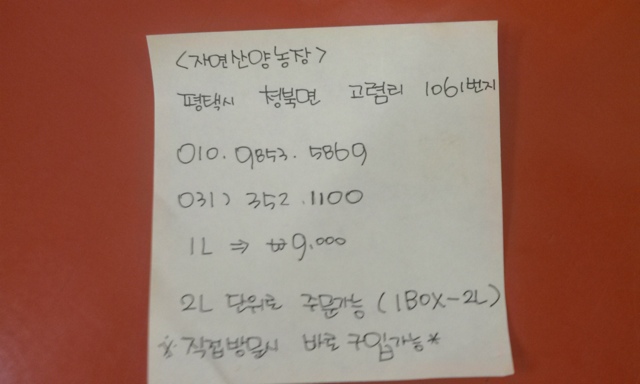 <자연산양농장>
평택시 청북면 고렴리 1061번지
010. 9853. 5869
031) 352. 1100
1L ⇒ ₩9,000
2L 단위로 주문가능 (1BOX-2L)
※ 직접방문시 바로구입가능*